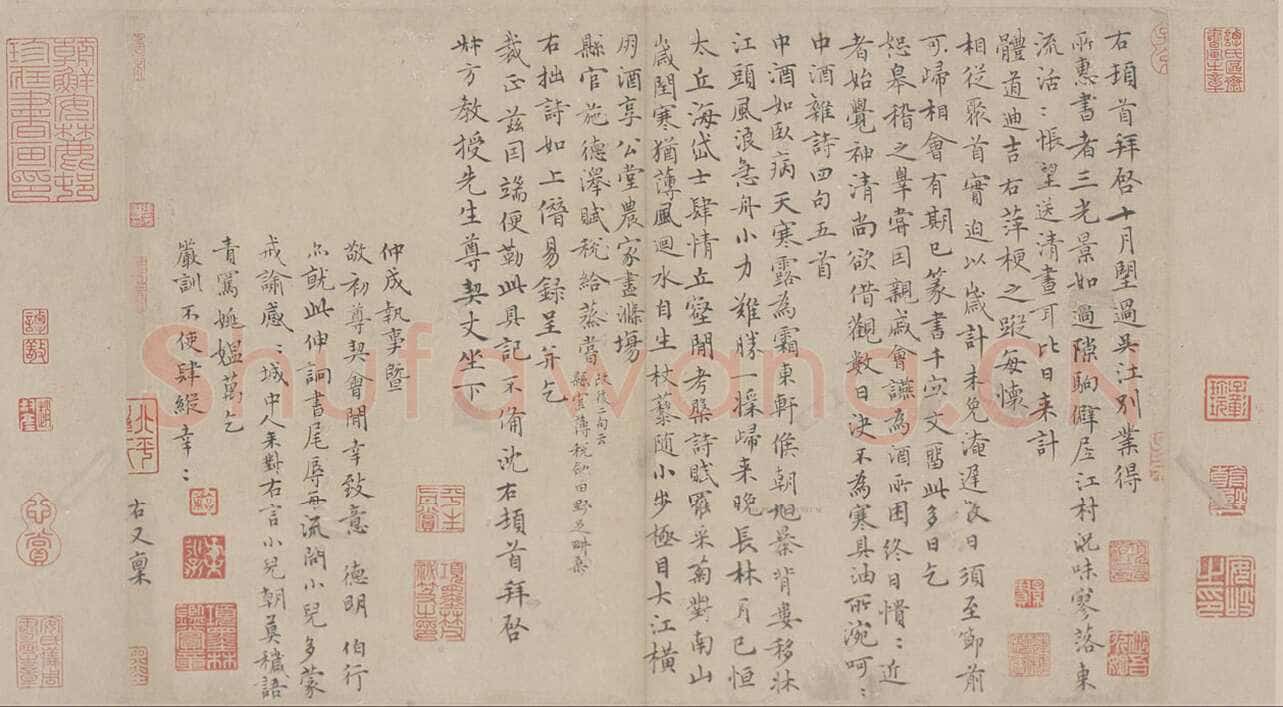 右頓首拜啓十月望過吳江別業得
所惠書者三光景如過隙駒僻居江村況味寥落東
流活〻悵望送清晝耳比日來計
體道迪吉右萍梗之蹤每懷
相從聚首實迫以歲計未免淹遲改日須至節前
可歸相會有期已篆書千字文留此多日乞
恕辠稽之辠嘗因親戚會讌為酒所困終日憒〻近
者始覺神清尚欲借觀數日決不為寒具油所涴呵〻
中酒雜詩四句五首
中酒如臥病天寒露為霜東軒候朝旭暴背婁移牀
江頭風浪急舟小力難勝一採歸來晚長林月已恒
太丘海岱士肆情丘壑間考槃詩賦罷采菊對南山
歲閏寒猶薄風迴水自生杖藜隨小步極目大江橫
朋酒享公堂農家盡滌場
縣官施德澤賦稅給蒸嘗 改後二句云
縣官薄稅斂田野足耕桑
右拙詩如上僭易錄呈并乞
裁正茲因端便勒此具記不備沈右頓首拜啓
艸方教授先生尊契丈坐下
仲成執事暨
敬初尊契會間幸致意 德明 伯行
亦就此伸詗書尾辱每流問小兒多蒙
戒諭感〻城中人來對右言小兒朝莫穢語
青罵姬媼萬乞
嚴訓不使肆縱幸〻
右又稟
朝鮮安岐邨
珍藏書畫印
安岐之印
平生真賞
項墨林
Shufawang.CN